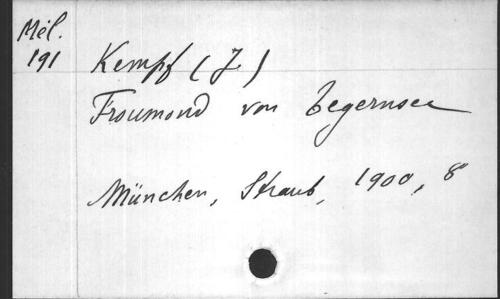 Mél.
191
Kempf (J)
Froumond von Tegernsee
München, Straub, 1900, 8°